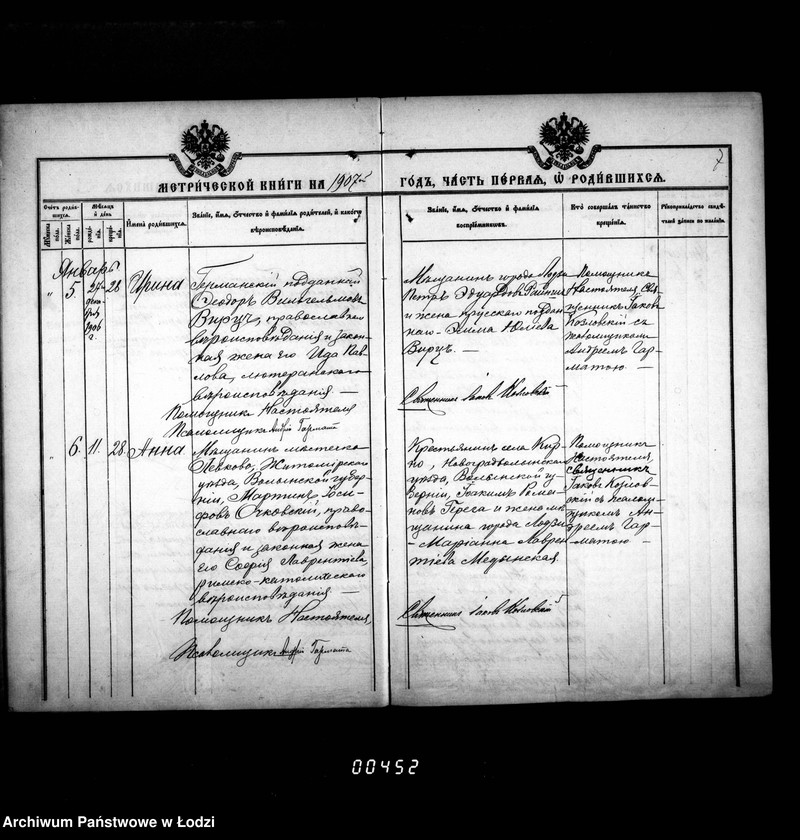 7
МЕТРИЧЕСКОЙ КНИГИ НА 1907
ГОДЪ, ЧАСТЬ ПЕРВАЯ, Ѡ РОДИВШИХСЯ.
Счетъ родив-
шихся.
Мѣсяцъ
и день
Имена родившихся.
Званіе, имя, отчество и фамилія родителей, и какого
вѣроисповѣданія.
Званіе, имя, отчество и фамилія
воспріемниковъ.
Кто совершалъ таинство
крещенія.
Январь
5. 28 Ирина
дека-
бря
1906
г.
Германскій подданный
Ѳеодоръ Вильгельмовъ
Вирцъ, православнаго
вѣроисповѣданія и закон-
ная жена его Ида Пав-
лова, лютеранскаго
вѣроисповѣданія —
Помощникъ Настоятеля
Псаломщикъ Андрій Гармата
Мѣщанинъ города Лодзи
Петръ Эдуардовъ
и жена прусского поддан-
наго
Вирцъ. —
Священникъ Іаковъ Козловскій
Помощникъ
Настоятеля Свя-
щенникъ Іаковъ
Козловскій съ
псаломщикомъ
Андреемъ Гар-
матою —
6. 11. 28. Анна
Мѣщанинъ мѣстечка
Левково, Житомірскаго
уѣзда, Волынской губер-
ніи, Мартинъ Іоси-
фовъ Очковскій, право-
славнаго вѣроисповѣ-
данія и законная жена
его Софія Лаврентіева,
римско-католическаго
вѣроисповѣданія —
Помощникъ Настоятеля,
Псаломщикъ Андрій Гармата
Крестьянинъ села
Новоградволынскаго
уѣзда, Волынской гу-
берніи, Іоакимъ Рома-
новъ Гереса и жена мѣ-
щанина города Лодзи
- Маріанна Лаврен-
тіева Медынская.
Священникъ Іаковъ Козловскій
Помощникъ
Настоятеля,
Священникъ
Іаковъ Козлов-
скій съ псалом-
щикомъ Ан-
дреемъ Гар-
матою —
00452
Archiwum Państwowe w Łodzi